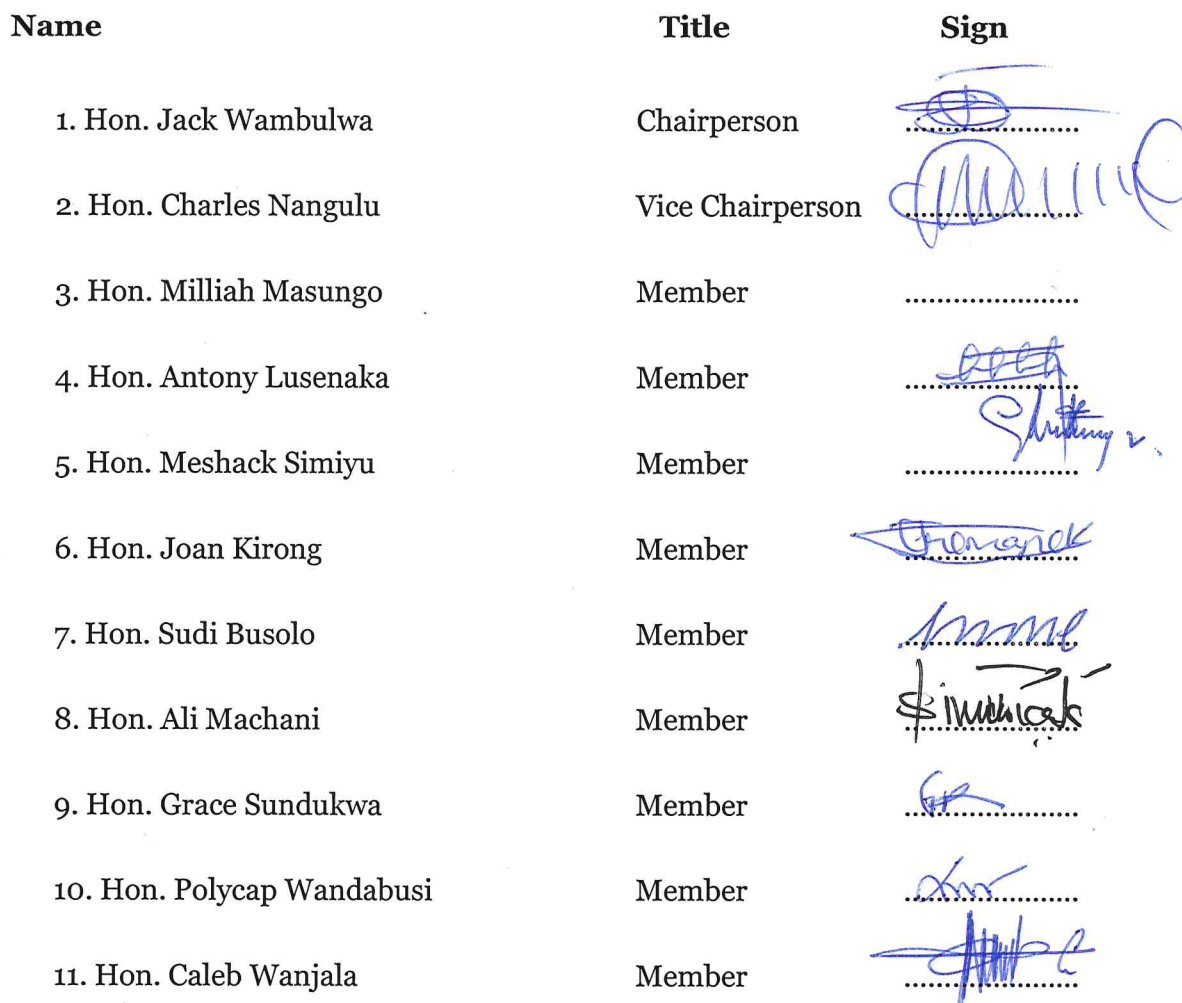 Name Title Sign
1. Hon. Jack Wambulwa Chairperson ........................
2. Hon. Charles Nangulu Vice Chairperson ........................
3. Hon. Milliah Masungo Member ........................
4. Hon. Antony Lusenaka Member ........................
5. Hon. Meshack Simiyu Member ........................
6. Hon. Joan Kirong Member ........................
7. Hon. Sudi Busolo Member ........................
8. Hon. Ali Machani Member ........................
9. Hon. Grace Sundukwa Member ........................
10. Hon. Polycap Wandabusi Member ........................
11. Hon. Caleb Wanjala Member ........................